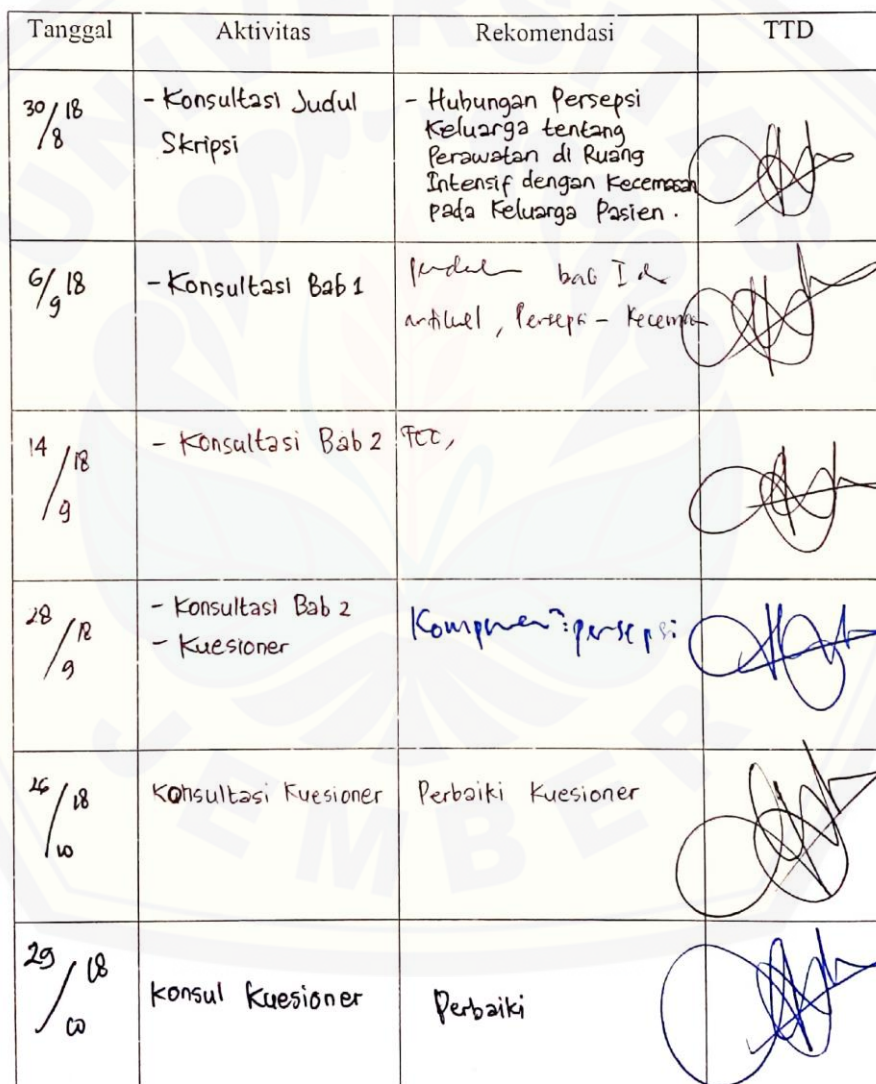 Tanggal Aktivitas Rekomendasi TTD
30/8 18 - Konsultasi Judul - Hubungan Persepsi
Skripsi Keluarga tentang
Perawatan di Ruang
Intensif dengan Kecemasan
pada Keluarga Pasien.
6/9 18 - Konsultasi Bab 1 bab I
artikel, Persepsi - Kecemasan
14/9 18 - Konsultasi Bab 2 FCC,
28/9 18 - Konsultasi Bab 2
- Kuesioner Komponen²: persepsi
26/10 18 Konsultasi Kuesioner Perbaiki Kuesioner
29/10 18 Konsul Kuesioner Perbaiki
UNIVERSITAS
JEMBER